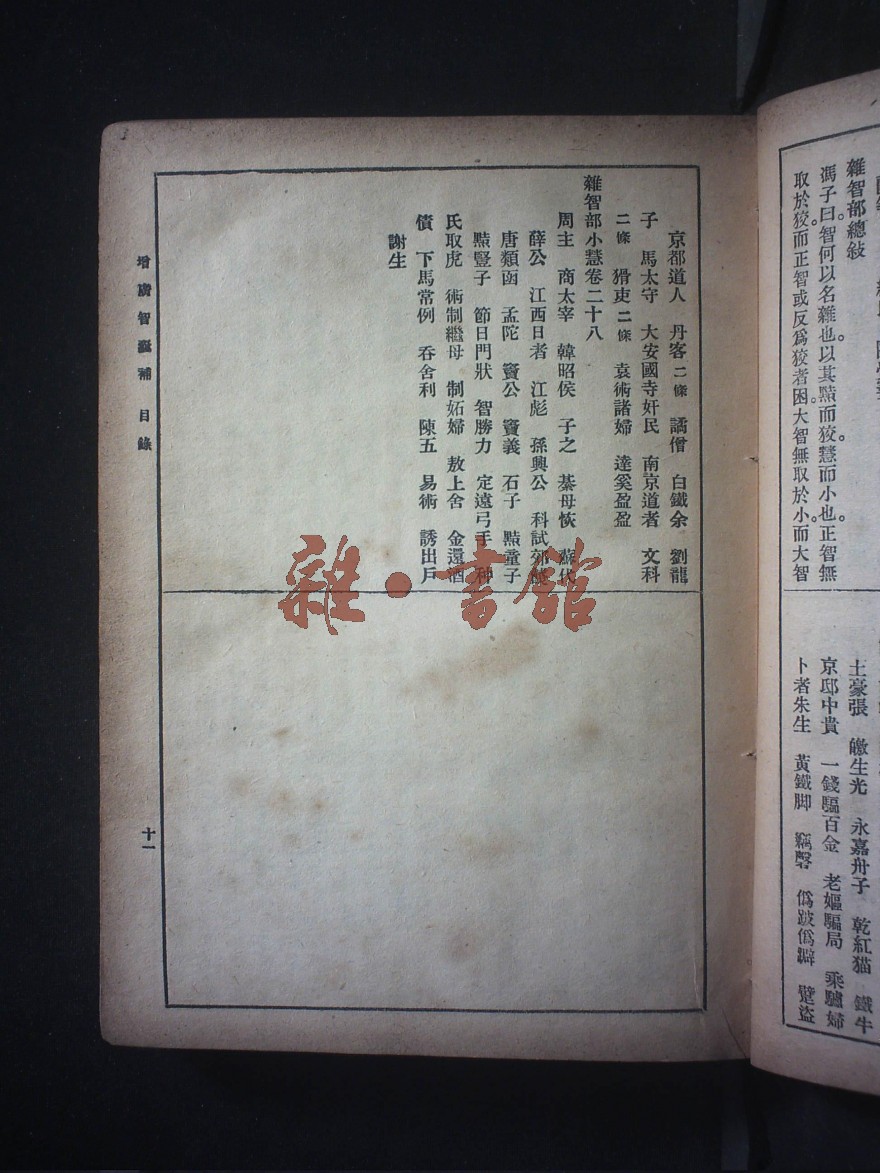 雜智部總敍
馮子曰智何以名雜也以其黠而狡慧而小也。正智無
取於狡。而正智或反爲狡者困。大智無取於小。而大智
土豪張　皦生光　永嘉舟子　乾紅猫　鐵牛
京邸中貴　一錢騙百金　老嫗騙局　乘驢婦
卜者朱生　黃鐵脚　竊磬　僞跛僞躃　躄盜
京都道人　丹客二條　譎僧　白鐵余　劉龍
子　馬太守　大安國寺奸民　南京道者　文科
二條　猾吏二條　袁術諸婦　達奚盈盈
雜智部小慧卷二十八
周主　商太宰　韓昭侯　子之　綦母恢　蘇代
薛公　江西日者　江彪　孫興公　科試郊餞
唐類函　孟陀　竇公　竇義　石子　黠童子
黠豎子　節日門狀　智勝力　定遠弓手　种
氏取虎　術制繼母　制妬婦　敖上舍　金還酒
債　下馬常例　吞舍利　陳五　易術　誘出戶
謝生
增廣智囊補　目錄
十一
雜·書館